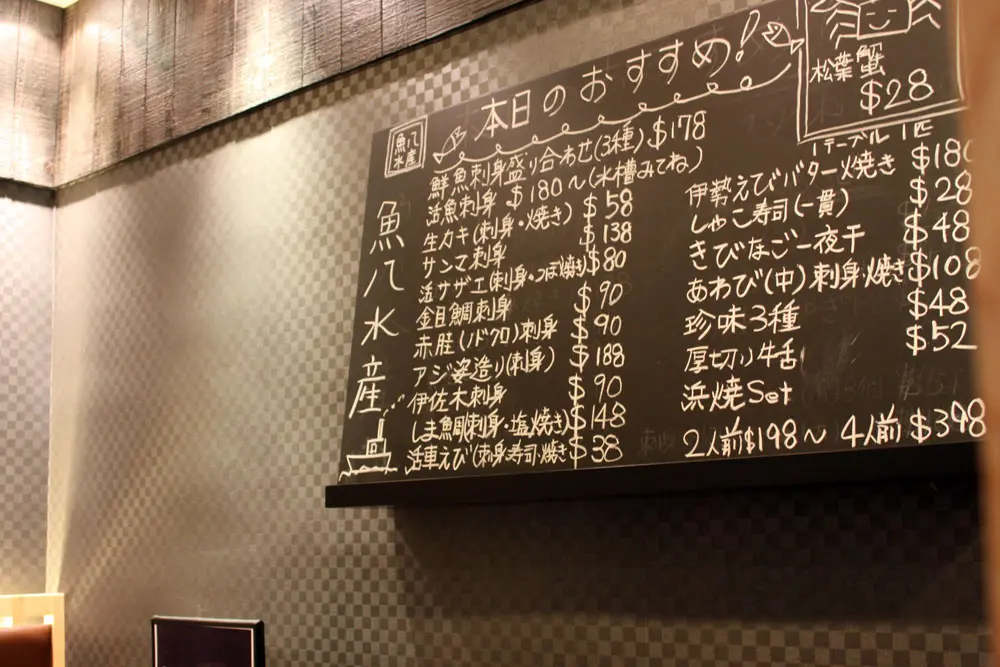 本日のおすすめ!
魚八
水産
魚八水産
鮮魚刺身盛り合わせ(3種) $178
活魚刺身 $180~(水槽みてね)
生カキ(刺身・焼き) $58
サンマ刺身 $138
活サザエ(刺身・つぼ焼き) $80
金目鯛刺身 $90
赤睦(ノドクロ)刺身 $90
アジ姿造り(刺身) $188
伊佐木刺身 $90
しま鯛(刺身・塩焼き) $148
活車えび(刺身・寿司・焼き $38
松葉蟹
$28
1テーブル 1匹
伊勢えびバター焼き $180
しゃこ寿司(一貫) $28
きびなご一夜干 $48
あわび(中)刺身・焼き $108
珍味3種 $48
厚切り牛舌 $52
浜焼Set
2人前$198~ 4人前 $398